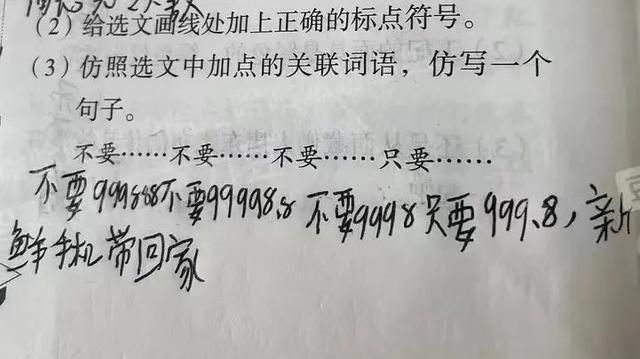 (2)给选文画线处加上正确的标点符号。
(3)仿照选文中加点的关联词语，仿写一个
句子。
不要……不要……不要……只要……
不要999888不要99998.8 不要9998只要999.8，新
鲜手机带回家